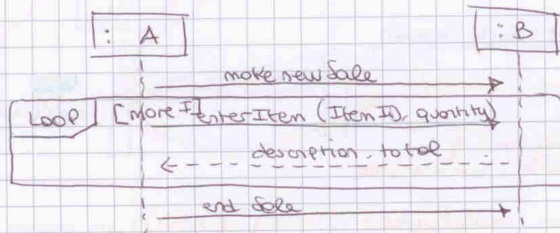 : A
: B
make new Sale
LOOP
[more I]
enterItem (ItemID, quantity)
description, total
end Sale